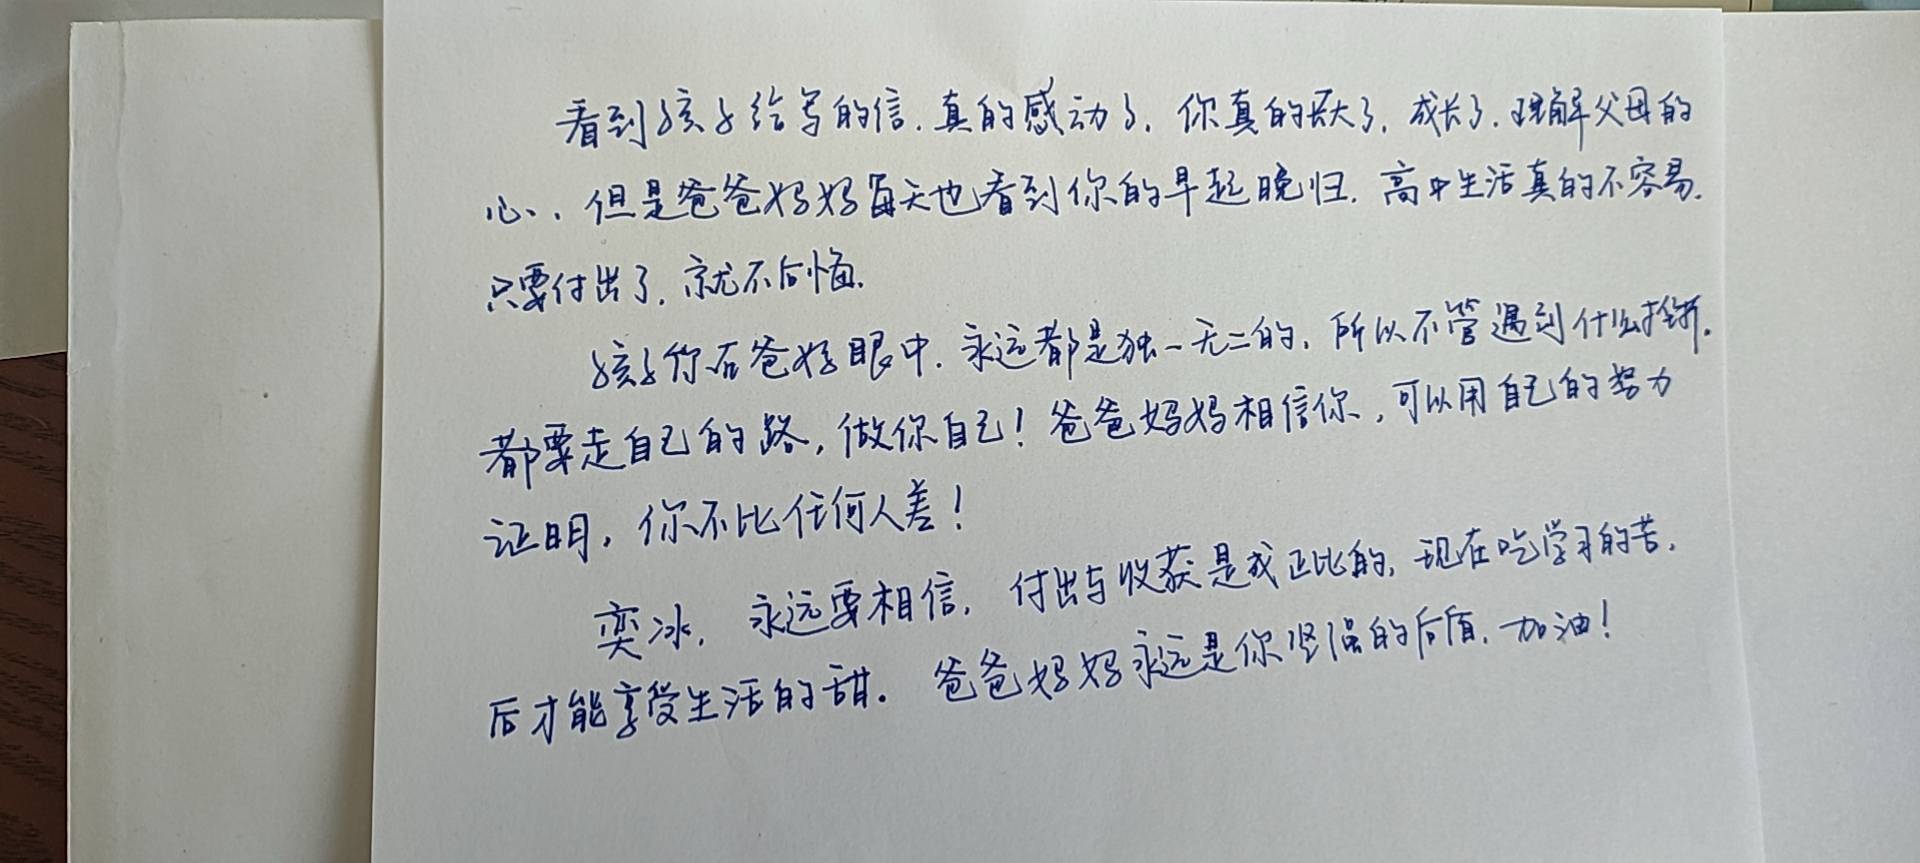 看到孩子给写的信.真的感动了.你真的长大了.成长了.理解父母的
心、.但是爸爸妈妈每天也看到你的早起晚归.高中生活真的不容易.
只要付出了.就不后悔.
孩子你在爸妈眼中.永远都是独一无二的.所以不管遇到什么挫折.
都要走自己的路,做你自己!爸爸妈妈相信你,可以用自己的努力
证明,你不比任何人差!
奕冰,永远要相信,付出与收获是成正比的,现在吃学习的苦,
后才能享受生活的甜.爸爸妈妈永远是你坚强的后盾.加油!